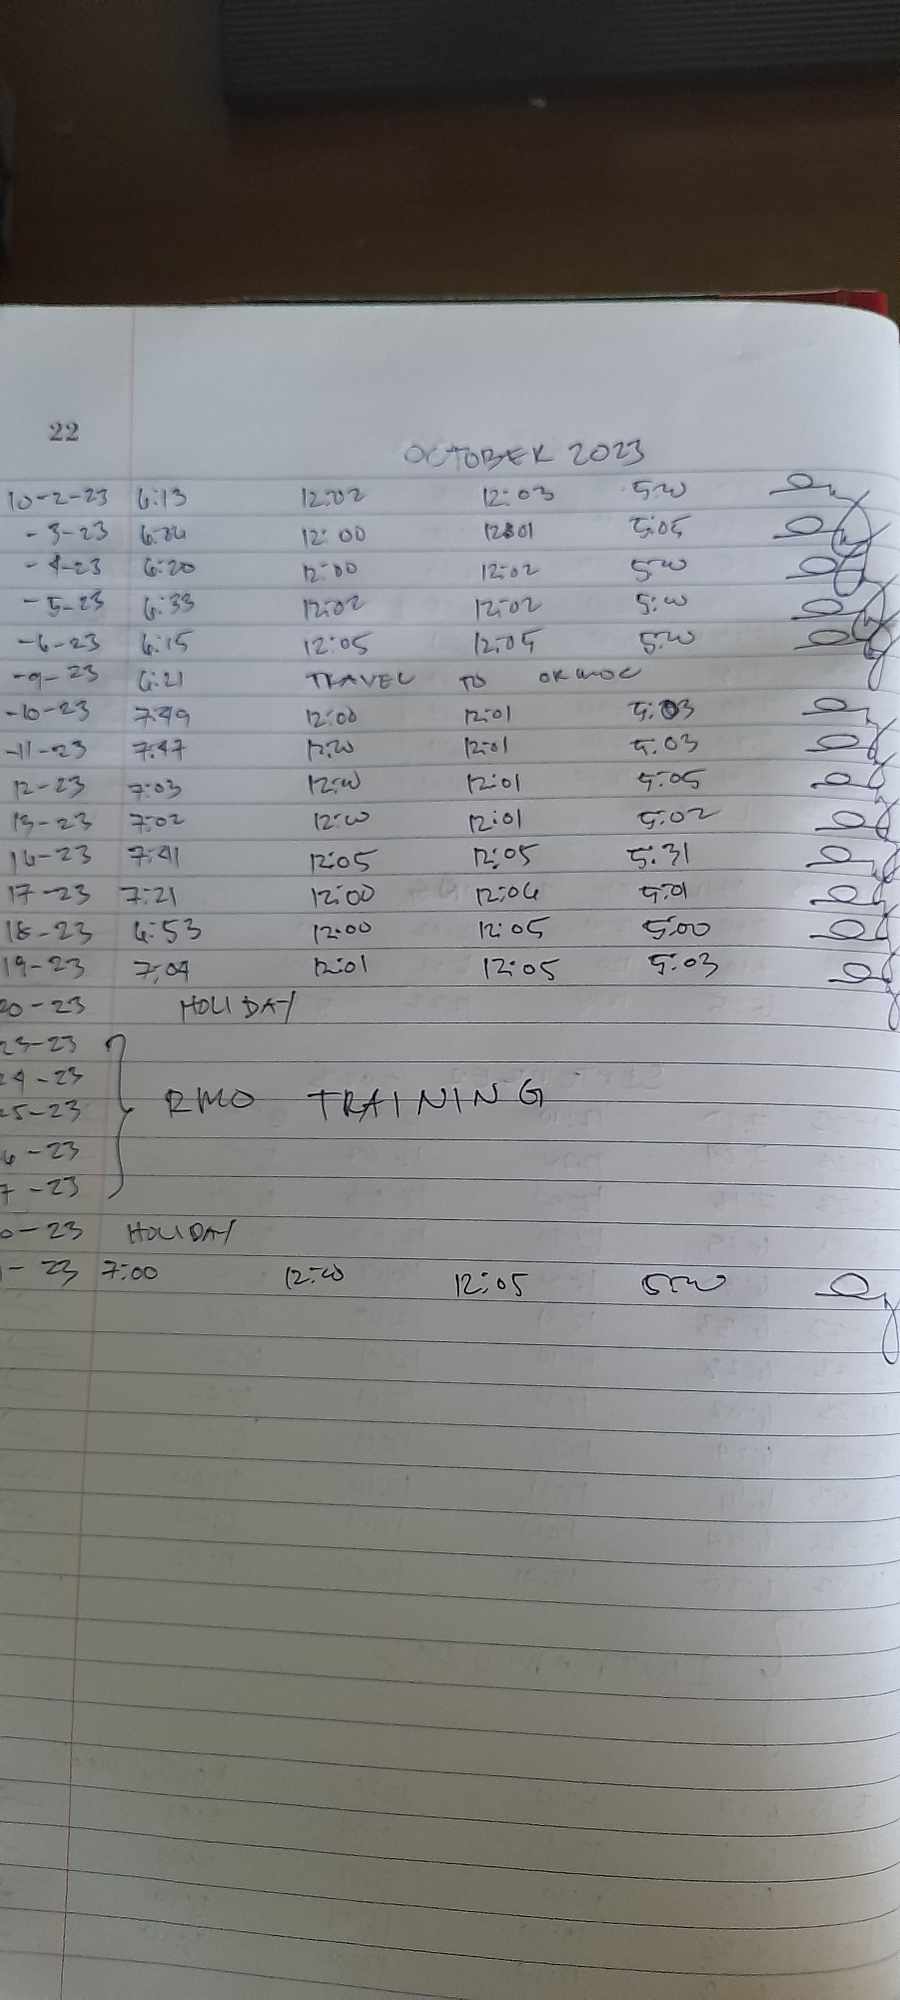 22
OCTOBER 2023
10-2-23 6:13 12:02 12:03 5:00
-3-23 12:00 12:01 5:05
-4-23 6:20 12:00 12:02 5:00
-5-23 6:33 12:02 12:02 5:00
-6-23 6:15 12:05 12:05 5:00
-9-23 6:21 TRAVEL TO ORMOC
-10-23 7:49 12:00 12:01 5:03
-11-23 7:47 12:00 12:01 5:03
12-23 7:03 12:00 12:01 5:05
13-23 7:02 12:00 12:01 5:02
16-23 7:41 12:05 12:05 5:31
17-23 7:21 12:00 12:04 5:01
18-23 6:53 12:00 12:05 5:00
19-23 7:04 12:01 12:05 5:03
20-23 HOLIDAY
23-23
24-23
25-23 RMO TRAINING
6-23
7-23
0-23 HOLIDAY
-23 7:00 12:00 12:05 5:00